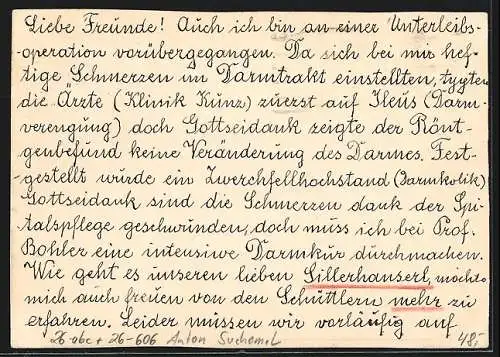 Liebe Freunde! Auch ich bin an einer Unterleibs-
operation vorübergegangen. Da sich bei mir hef-
tige Schmerzen im Darmtrakt einstellten, typten
die Ärzte (Klinik Kunz) zuerst auf Ileus (Darm-
verengung) doch Gottseidank zeigte der Rönt-
genbefund keine Veränderung des Darmes. Fest-
gestellt würde ein Zwerchfellhochstand (Darmkolik)
Gottseidank sind die Schmerzen dank der Spi-
talspflege geschwunden, doch müss ich bei Prof.
Bohler eine intensive Darmkur dürchmachen.
Wie geht es unseren lieben Sillerhanserl, möchte
mich auch freuen von den Schüttlern mehr zu
erfahren. Leider müssen wir vorläufig auf
26-abc + 26-606 Anton Suchemel 48,-